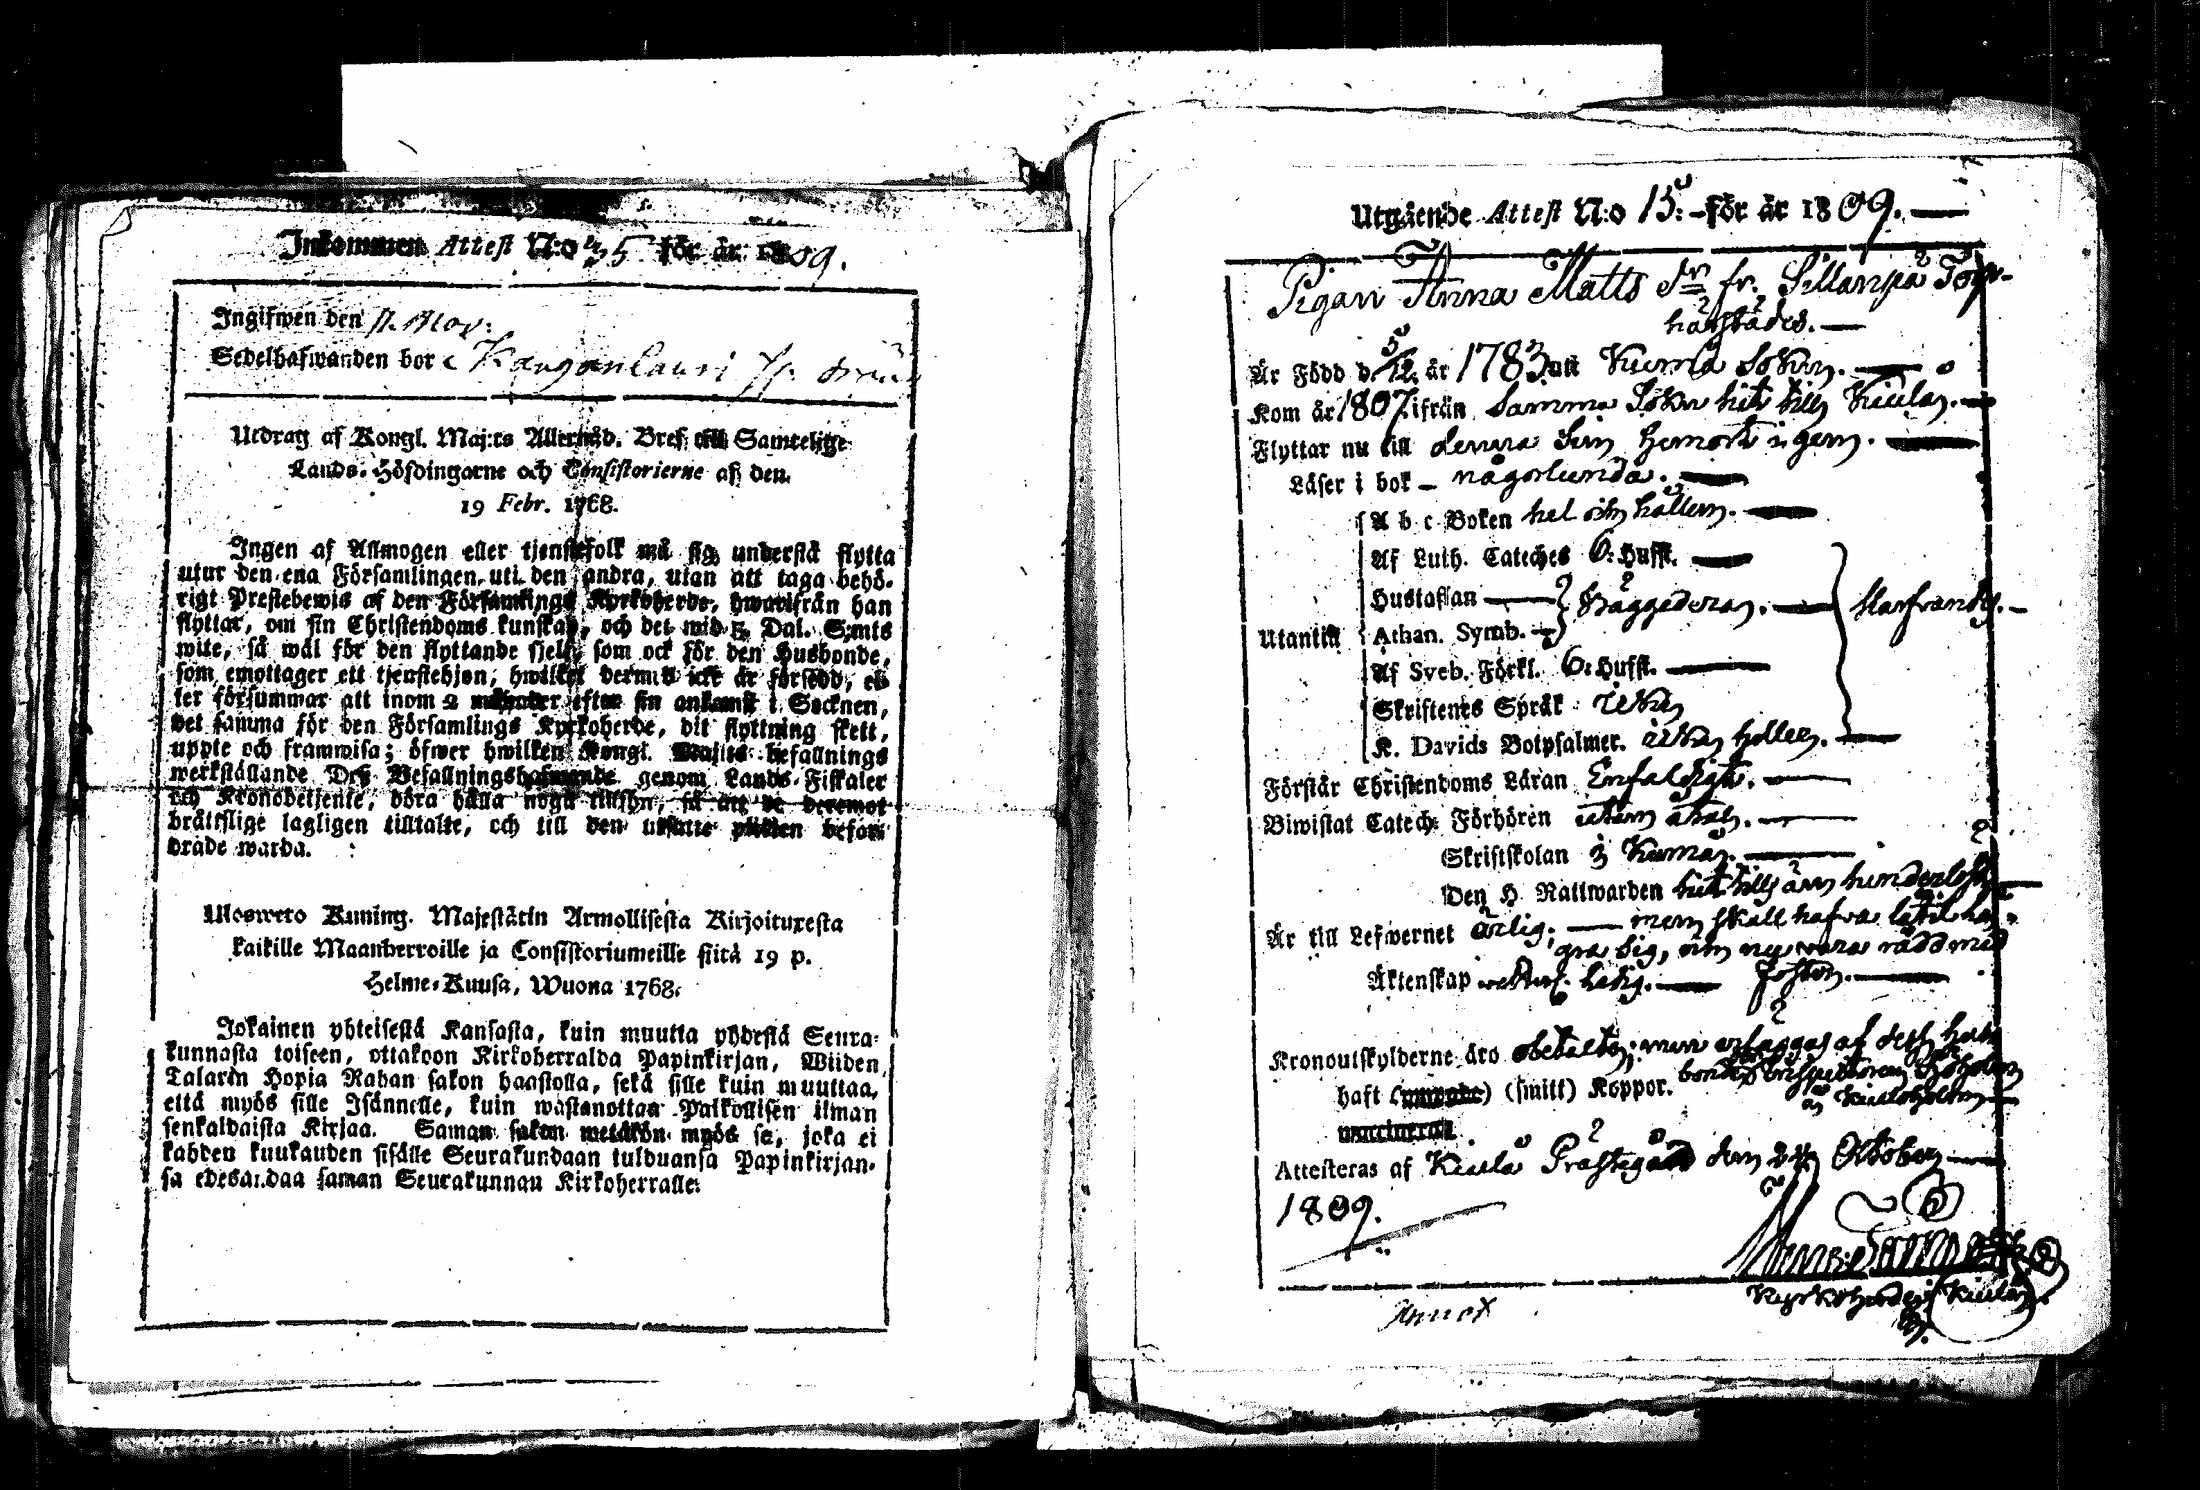 Inkommen Attest N:o 35 för år 1809.
Ingifwen den 11. Nov:
Sedelhafwanden bor
Utdrag af Kongl. Maj:ts Allernåd. Bref till Samtelige
Lands-Höfdingarne och Consistorierne af den
19 Febr. 1768.
Ingen af Allmogen eller tjenstefolk må sig understå flytta
utur den ena Församlingen uti den andra, utan att taga behö-
rigt Prestebewis af den Församlings Kyrkoherde, hwarifrån han
flyttar, om sin Christendoms kunskap, och det wid 5 Dal. S:mts
wite, så wäl för den flyttande sjelf, som ock för den Husbonde,
som emottager ett tjenstehjon, hwilket dermed icke är försedd, el-
ler försummar att inom 2 månader efter sin ankomst i Socknen,
det samma för den Församlings Kyrkoherde, dit flyttning skett,
uppte och framwisa; öfwer hwilken Kongl. Maj:ts befallnings
werkställande Dess Befallningshafwande genom Lands-Fiskaler
och Kronobetjente, böra hålla noga tillsyn, så att de deremot
bråttslige lagligen tilltalte, och till den utsatte plikten beford-
rade warda.
Ulosweto Kuning. Majestätin Armollisesta Kirjoituxesta
kaikille Maanherroille ja Consistoriumeille siitä 19 p.
Helme-Kuusa, Wuona 1768.
Jokainen yhteisestä Kansasta, kuin muutta yhdestä Seura-
kunnasta toiseen, ottakoon Kirkoherralda Papinkirjan, Wiiden
Talarin Hopia Rahan sakon haastolla, sekä sille kuin muuttaa,
että myös sille Isännelle, kuin wastanottaa Palkollisen ilman
senkaldaista Kirjaa. Saman sakon wetäkön myös se, joka ei
kahden kuukauden sisälle Seurakundaan tulduansa Papinkirjan-
sa edesandaa saman Seurakunnan Kirkoherralle.
Utgående Attest N:o 15: för år 1809.
Pigan Anna Matts dr fr. Sillanpä Torp
härstädes.
Är Född d. 5/12 år 1783 uti Kumå Sokn.
Kom år 1807 ifrån samma Sokn hit till Kiulo.
Flyttar nu till denna sin hemort igen.
Läser i bok någorlunda.
Utantill
A b c Boken hel och hållen.
Af Luth. Cateches 6. Hufst.
Hustaflan
Athan. Symb. Bäggedera.
Af Sveb. Förkl. 6. Hufst.
Skriftenes Språk
K. Davids Botpsalmer.
Förstår Christendoms Läran Enfaldigt.
Biwistat Catech. Förhören utan åtal.
Skriftskolan i Kumå.
Den H. Nattwarden hit tills
Är till Lefwernet ärlig; men skall hafva låtit
Äktenskap ledig.
Kronoutskylderne äro obetalte; men
haft (smitt) Koppor.
Attesteras af Kiulo Prästegård den 24 October
1809.
Kyrkoherde i Kiulo